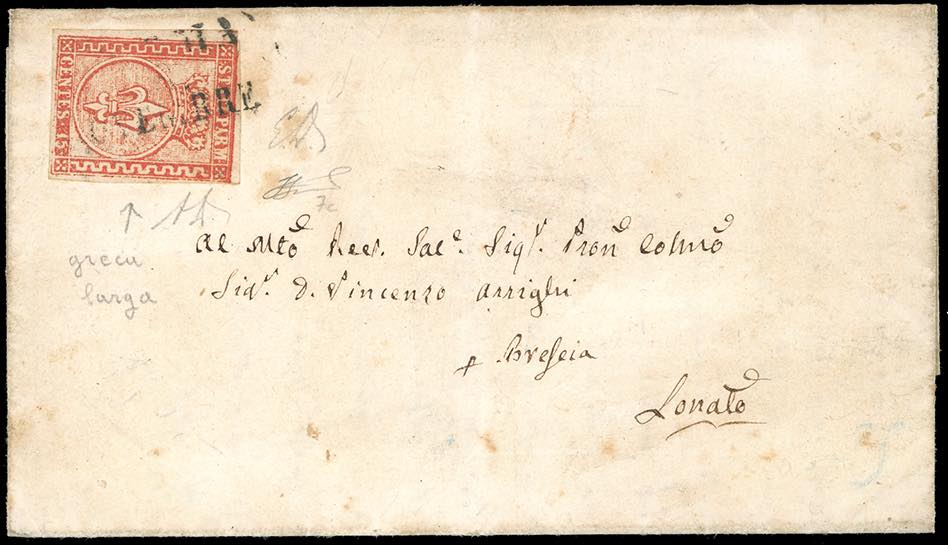 STATI PARM.
CENTES. 15
BRE
7c
greca
larga
Al Mto. Rev. Sace. Sigr. Pron Colmo
Sigr. D. Vincenzo Arrighi
p Brescia
Lonato